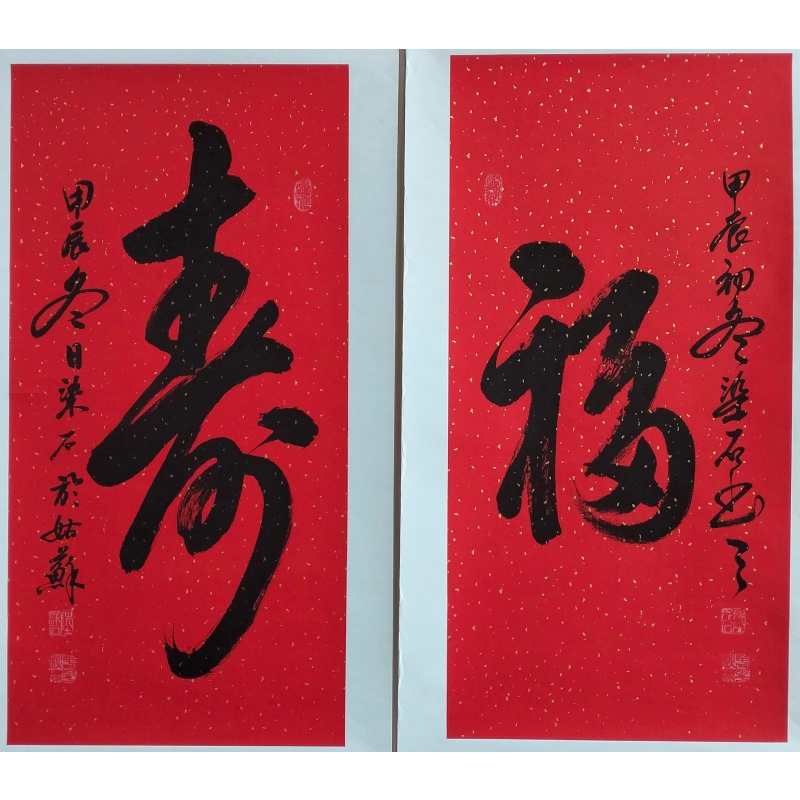 福
甲辰初冬染石書之
壽
甲辰冬日染石於姑蘇